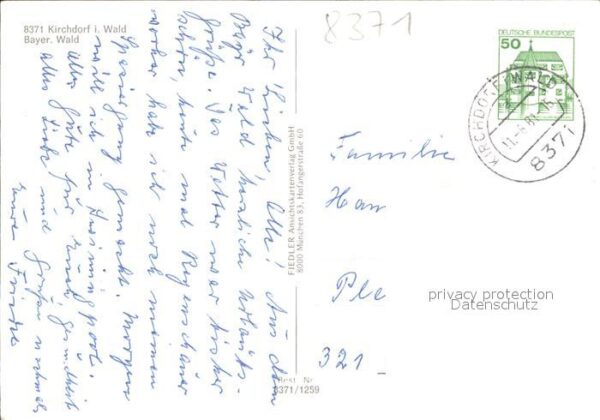 8371 Kirchdorf i. Wald
Bayer. Wald
8371
Ihr Lieben, Alle! Aus dem
Bayr. Wald herzliche Urlaubs-
Grüße. Das Wetter war bisher
schön, heute mal Regenschauer
vorher habe ich noch meinen
Spaziergang gemacht. Morgen
will ich in
alles Gute für Euch, Gesundheit
alles Liebe und Grüße
Eure
FIEDLER Ansichtskartenverlag GmbH
8000 München 83, Hofangerstraße 60
Best. Nr.
8371/1259
DEUTSCHE BUNDESPOST
50
KIRCHDORF, WALD
8371
Familie
Han
Ple
321
privacy protection
Datenschutz